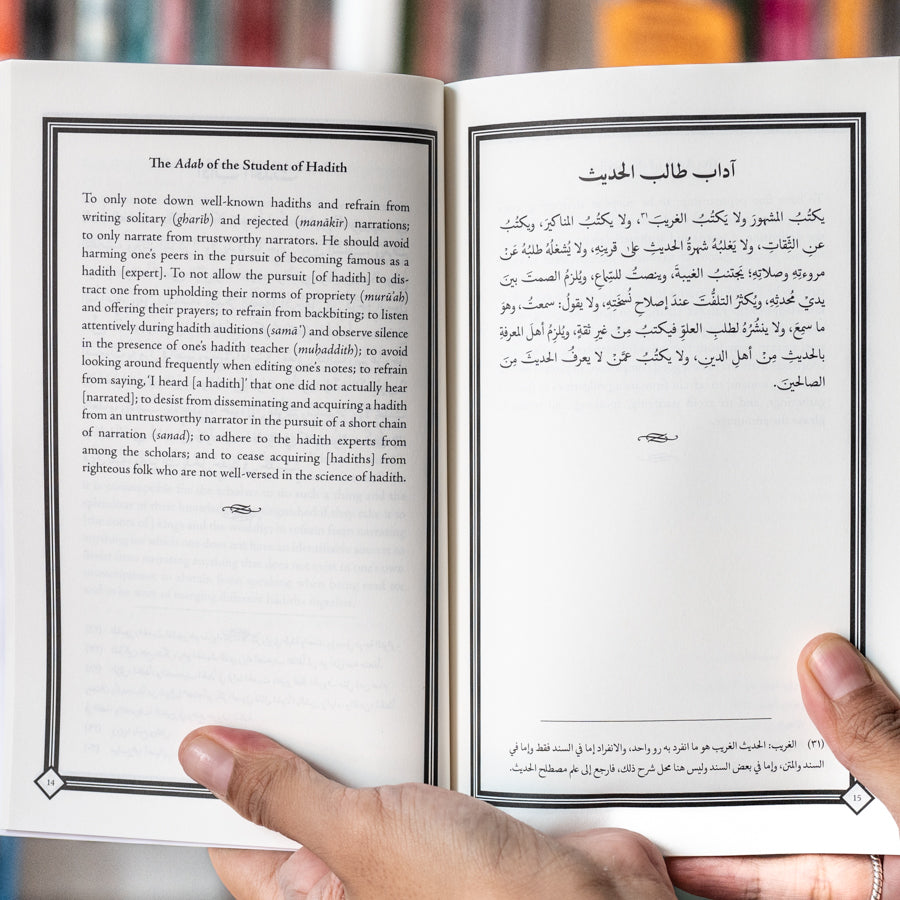 The Adab of the Student of Hadith
To only note down well-known hadiths and refrain from
writing solitary (gharīb) and rejected (manākīr) narrations;
to only narrate from trustworthy narrators. He should avoid
harming one's peers in the pursuit of becoming famous as a
hadith [expert]. To not allow the pursuit [of hadith] to dis-
tract one from upholding their norms of propriety (murū'ah)
and offering their prayers; to refrain from backbiting; to listen
attentively during hadith auditions (samā') and observe silence
in the presence of one's hadith teacher (muḥaddith); to avoid
looking around frequently when editing one's notes; to refrain
from saying, 'I heard [a hadith]' that one did not actually hear
[narrated]; to desist from disseminating and acquiring a hadith
from an untrustworthy narrator in the pursuit of a short chain
of narration (sanad); to adhere to the hadith experts from
among the scholars; and to cease acquiring [hadiths] from
righteous folk who are not well-versed in the science of hadith.
14
آداب طالب الحديث
يكتُبُ المشهورَ ولا يَكتُبُ الغريبَ٣١، ولا يكتُبُ المناكيرَ، ويكتُبُ
عنِ الثِّقاتِ، ولا يَغلبُهُ شهرةُ الحديثِ على قرينِهِ، ولا يُشغلُهُ طلبُهُ عَنْ
مروءتِهِ وصلاتِهِ؛ يجتنبُ الغيبةَ، وينصتُ للسِّماعِ، ويُلزمُ الصمتَ بينَ
يديْ مُحدثِهِ، ويُكثرُ التلفُّتَ عندَ إصلاحِ نُسخَتِهِ، ولا يقولُ: سمعتُ، وهوَ
ما سمِعَ، ولا ينشُرُهُ لطلبِ العلوِّ فيكتبُ مِنْ غيرِ ثقةٍ، ويُلزِمُ أهلَ المعرفةِ
بالحديثِ مِنْ أهلِ الدينِ، ولا يكتُبُ عمَّنْ لا يعرفُ الحديثَ مِنَ
الصالحينَ.
(٣١) الغريب: الحديث الغريب هو ما انفرد به رو واحد، والانفراد إما في السند فقط وإما في
السند والمتن، وإما في بعض السند وليس هنا محل شرح ذلك، فارجع إلى علم مصطلح الحديث.
15